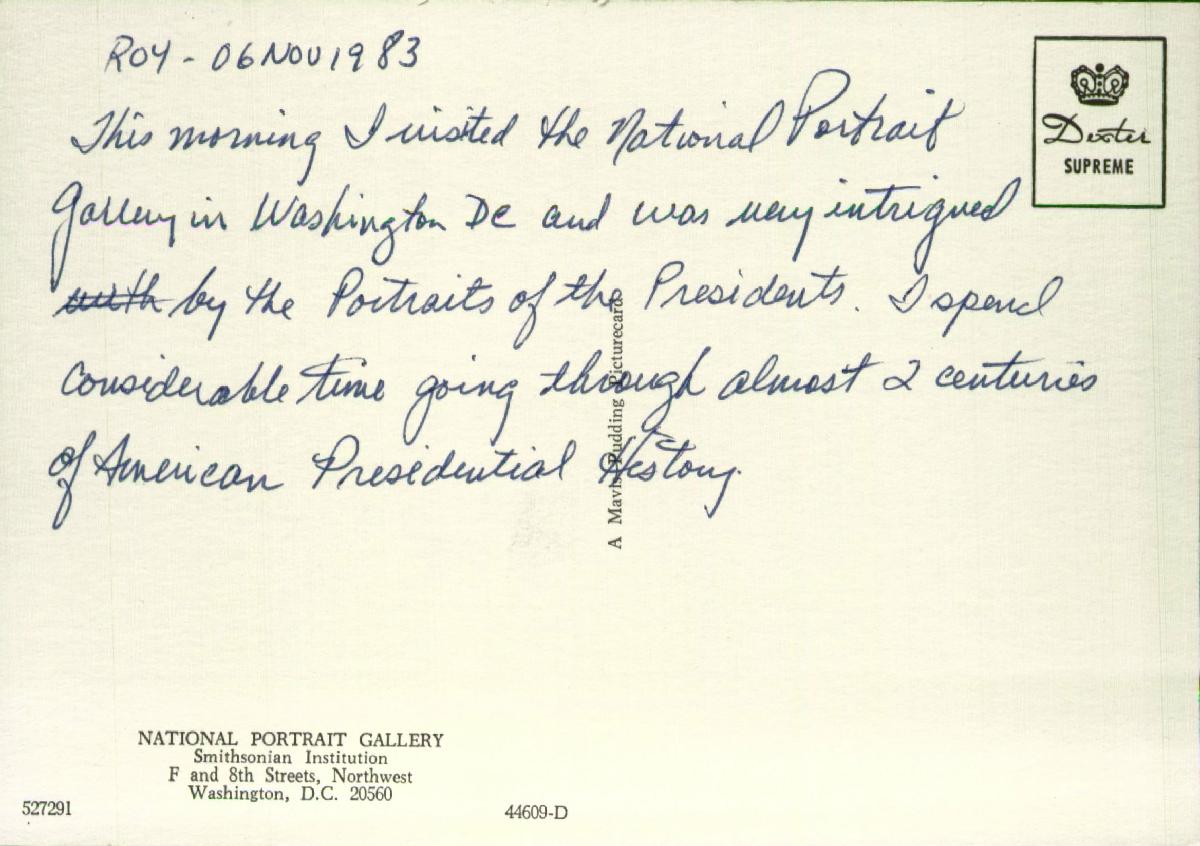 ROY - 06 NOV 1983
This morning I visited the National Portrait
Gallery in Washington DC and was very intrigued
with by the Portraits of the Presidents. I spend
considerable time going through almost 2 centuries
of American Presidential History.
Dexter
SUPREME
A Mavis Pudding Picturecard
NATIONAL PORTRAIT GALLERY
Smithsonian Institution
F and 8th Streets, Northwest
Washington, D.C. 20560
527291
44609-D